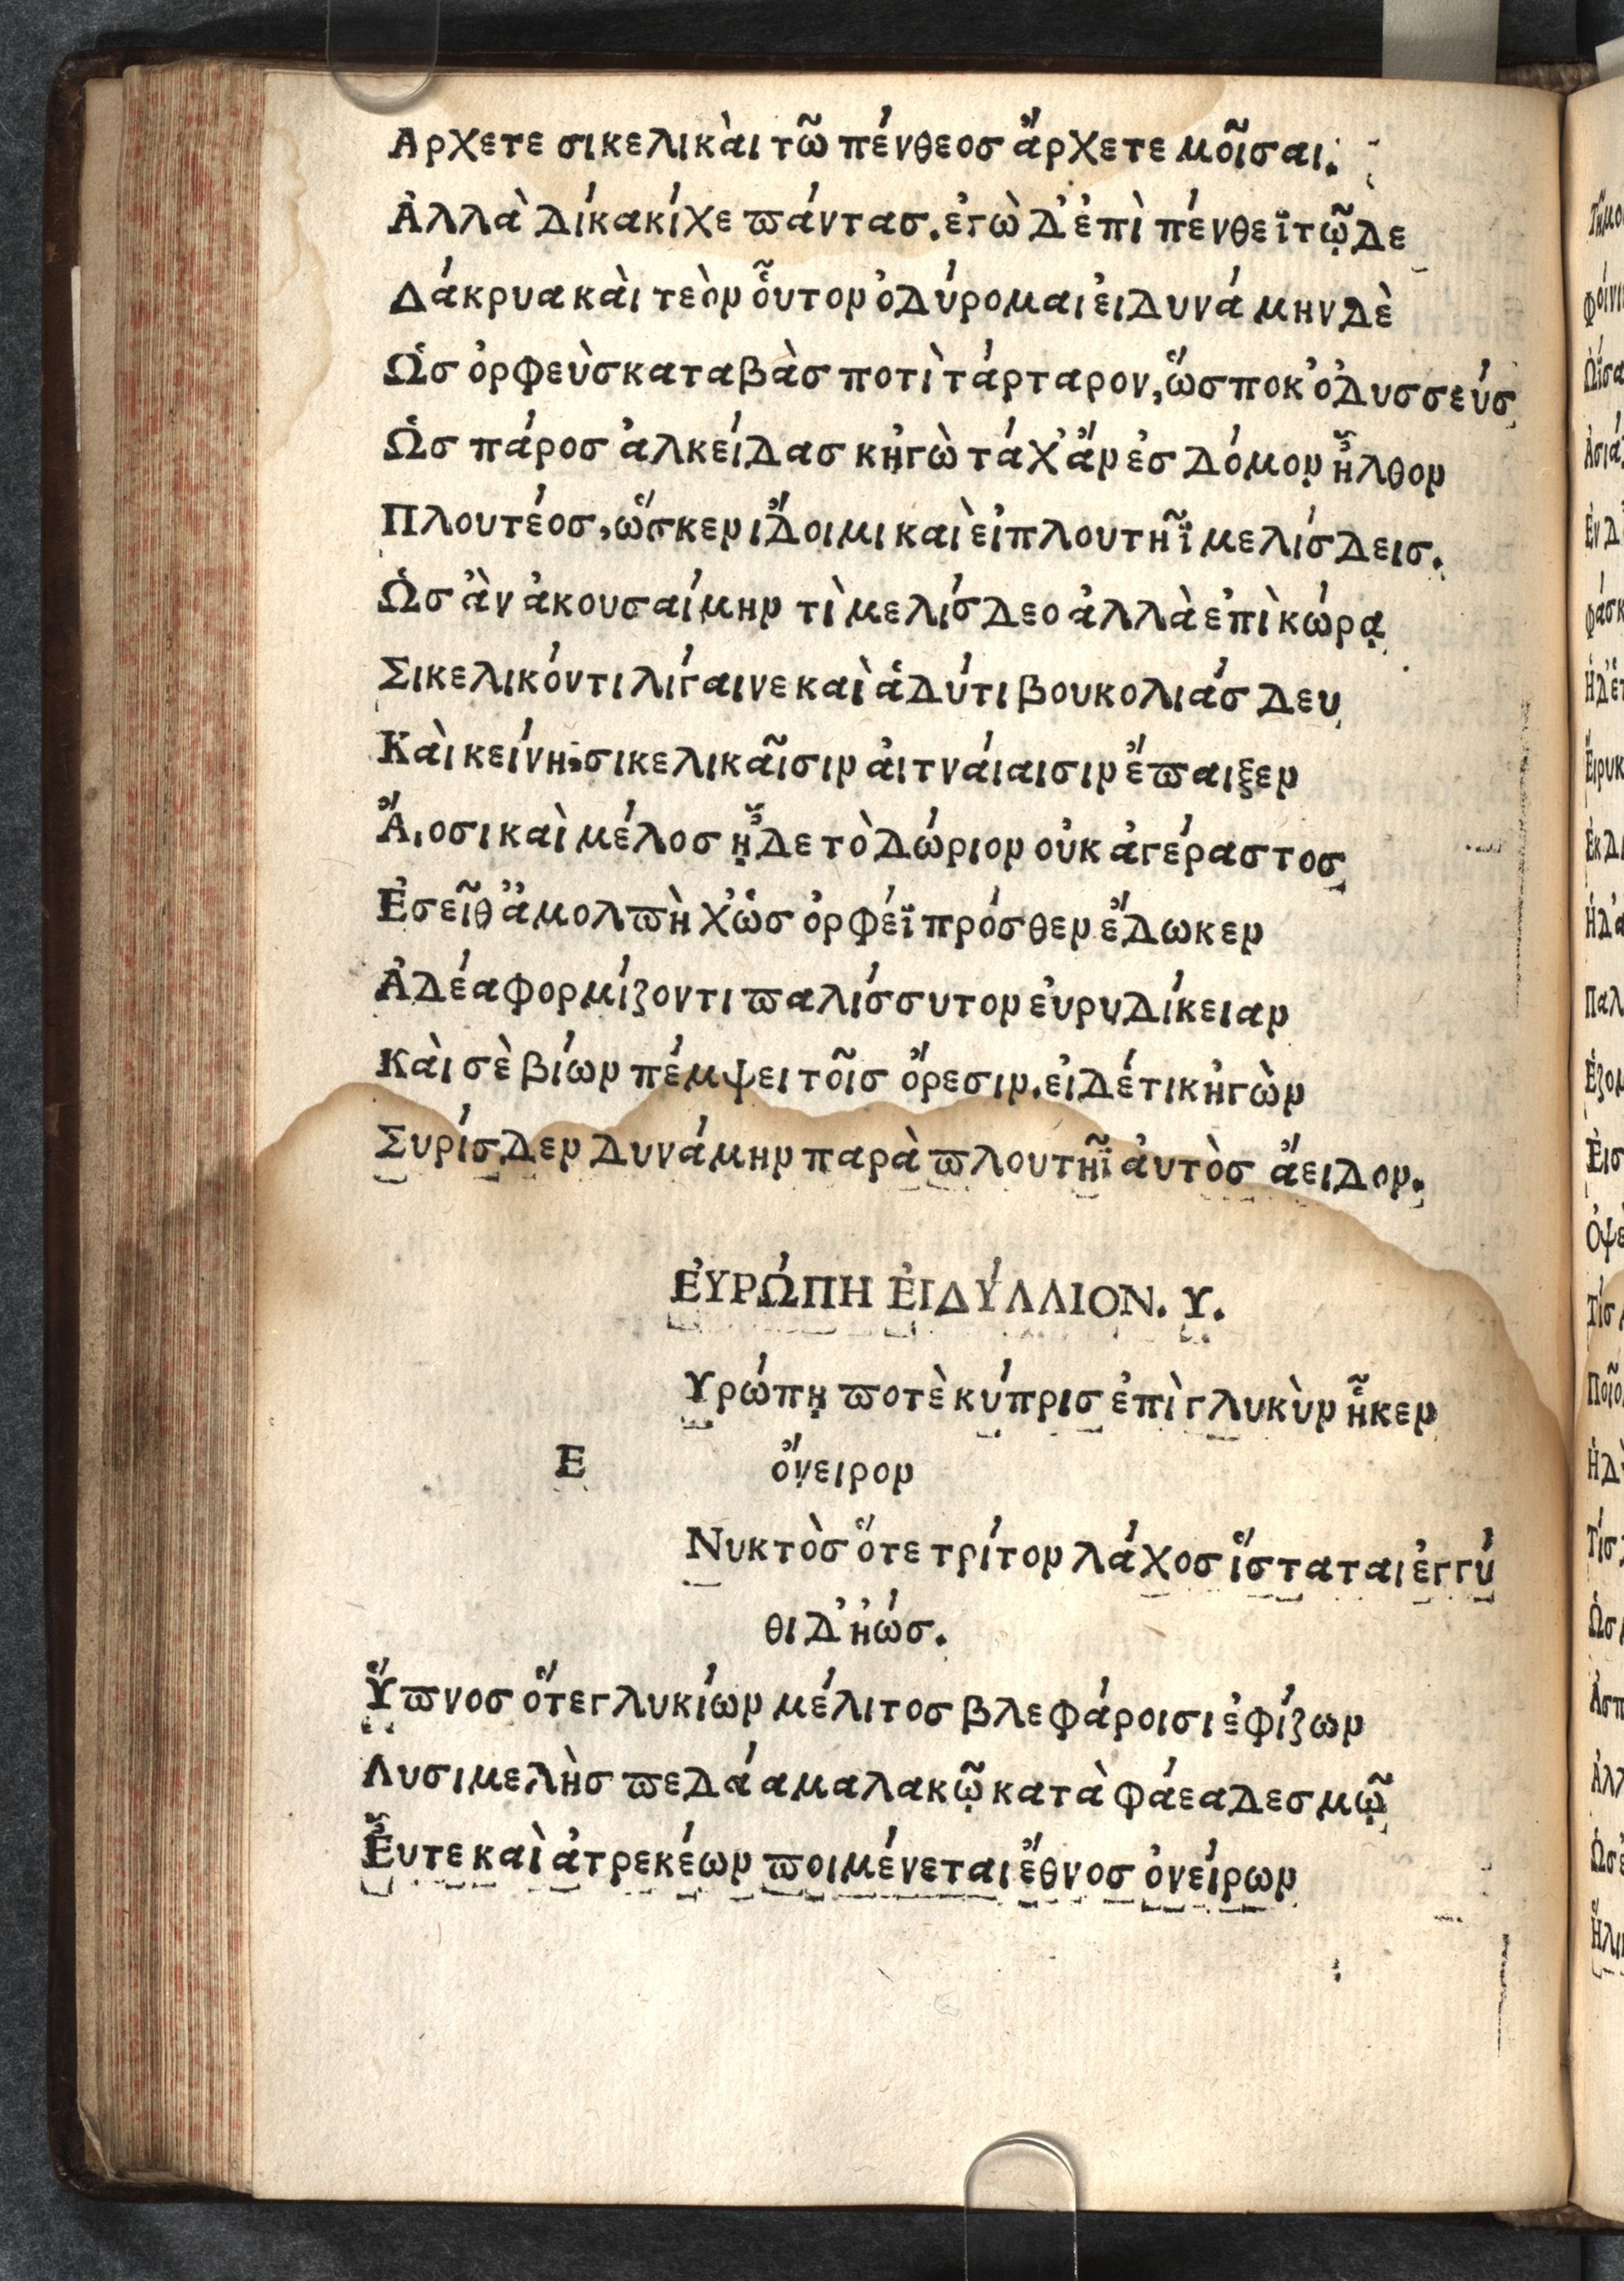 Αρχετε σικελικὰι τῶ πένθεοσ ἄρχετε μοῖσαι.
Ἀλλὰ δίκα κίχε πάντασ. ἐγὼ δ' ἐπὶ πένθεϊ τῷδε
Δάκρυα κὰι τεὸν ὅυτον ὀδύρομαι ἐι δυνάμην δὲ
Ὡσ ὀρφεὺσ καταβὰσ ποτὶ τάρταρον, ὥσ ποκ' ὀδυσσεύσ
Ὡσ πάροσ ἀλκείδασ κἠγὼ τάχ' ἂν ἐσ δόμον ἦλθον
Πλουτέοσ, ὥσκεν ἴδοιμι καὶ εἰ πλουτῆϊ μελίσδεισ.
Ὡσ ἂν ἀκουσαίμην τὶ μελίσδεο ἀλλὰ ἐπὶ κώρᾳ
Σικελικόντι λίγαινε καὶ ἁδύτι βουκολιάσδευ
Κὰι κείνη σικελικᾶισιν ἀιτνάιαισιν ἔπαιξεν
Ἄιοσι καὶ μέλοσ ᾖδε τὸ δώριον οὐκ ἀγέραστοσ
Ἐσεῖθ ἃ μολπὴ χὡσ ὀρφέϊ πρόσθεν ἔδωκεν
Ἁδέα φορμίζοντι παλίσσυτον ἐυρυδίκειαν
Κὰι σὲ βίων πέμψει τοῖσ ὄρεσιν. ἐι δέ τι κἠγὼν
Συρίσδεν δυνάμην παρὰ πλουτῆϊ ἀυτὸσ ἄειδον.
ἘΥΡΏΠΗ ἘΙΔΎΛΛΙΟΝ. Υ.
Υρώπῃ ποτὲ κύπρισ ἐπὶ γλυκὺν ἧκεν
Ε ὄνειρον
Νυκτὸσ ὅτε τρίτον λάχοσ ἵσταται ἐγγύ
θι δ' ἠώσ.
Ὕπνοσ ὅτε γλυκίων μέλιτοσ βλεφάροισι ἐφίζων
Λυσιμελὴσ πεδάα μαλακῷ κατὰ φάεα δεσμῷ
Ἐῦτε καὶ ἀτρεκέων ποιμένεται ἔθνοσ ὀνείρων